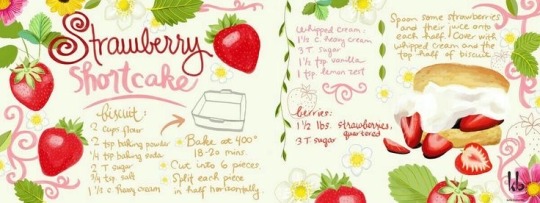 Strawberry
Shortcake
biscuit:
2 cups flour
2 tsp baking powder
1/4 tsp baking soda
2 T sugar
3/4 tsp salt
1 1/2 c. heavy cream
Bake at 400°
18-20 mins.
Cut into 6 pieces.
Split each piece
in half horizontally
Whipped cream:
1 1/2 c. heavy cream
3 T. sugar
1 1/2 tsp. vanilla
1 tsp. lemon zest
berries:
1 1/2 lbs. strawberries,
quartered
3 T sugar
Spoon some strawberries
and their juice onto
each half. Cover with
whipped cream and the
top half of biscuit.
kb